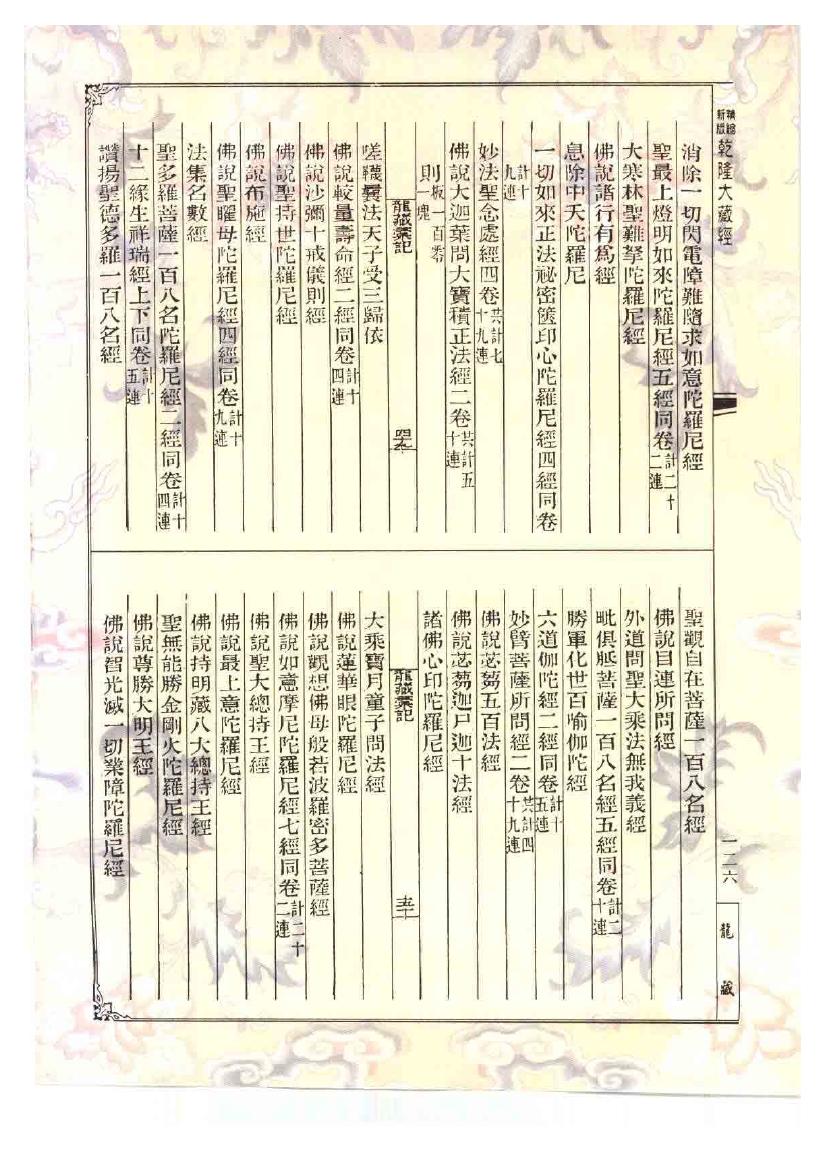 新編
縮版
乾隆大藏經
消除一切閃電障難隨求如意陀羅尼經
聖最上燈明如來陀羅尼經五經同卷計二十二連
大寒林聖難拏陀羅尼經
佛說諸行有為經
息除中夭陀羅尼
一切如來正法祕密篋印心陀羅尼經四經同卷
計十九連
妙法聖念處經四卷共計七十九連
佛說大迦葉問大寶積正法經二卷共計五十連
則板一百零一塊
龍藏彙記
四十九
嗟韈曩法天子受三歸依
佛說較量壽命經二經同卷計十四連
佛說沙彌十戒儀則經
佛說聖持世陀羅尼經
佛說布施經
佛說聖曜母陀羅尼經四經同卷計十九連
法集名數經
聖多羅菩薩一百八名陀羅尼經二經同卷計十四連
十二緣生祥瑞經上下同卷計十五連
讚揚聖德多羅一百八名經
聖觀自在菩薩一百八名經
佛說目連所問經
外道問聖大乘法無我義經
毗俱胝菩薩一百八名經五經同卷計二十連
勝軍化世百喻伽陀經
六道伽陀經二經同卷計十五連
妙臂菩薩所問經二卷共計四十九連
佛說苾芻五百法經
佛說苾芻迦尸迦十法經
諸佛心印陀羅尼經
龍藏彙記
五十
大乘寶月童子問法經
佛說蓮華眼陀羅尼經
佛說觀想佛母般若波羅密多菩薩經
佛說如意摩尼陀羅尼經七經同卷計二十二連
佛說聖大總持王經
佛說最上意陀羅尼經
佛說持明藏八大總持王經
聖無能勝金剛火陀羅尼經
佛說尊勝大明王經
佛說智光滅一切業障陀羅尼經
一二六
龍藏